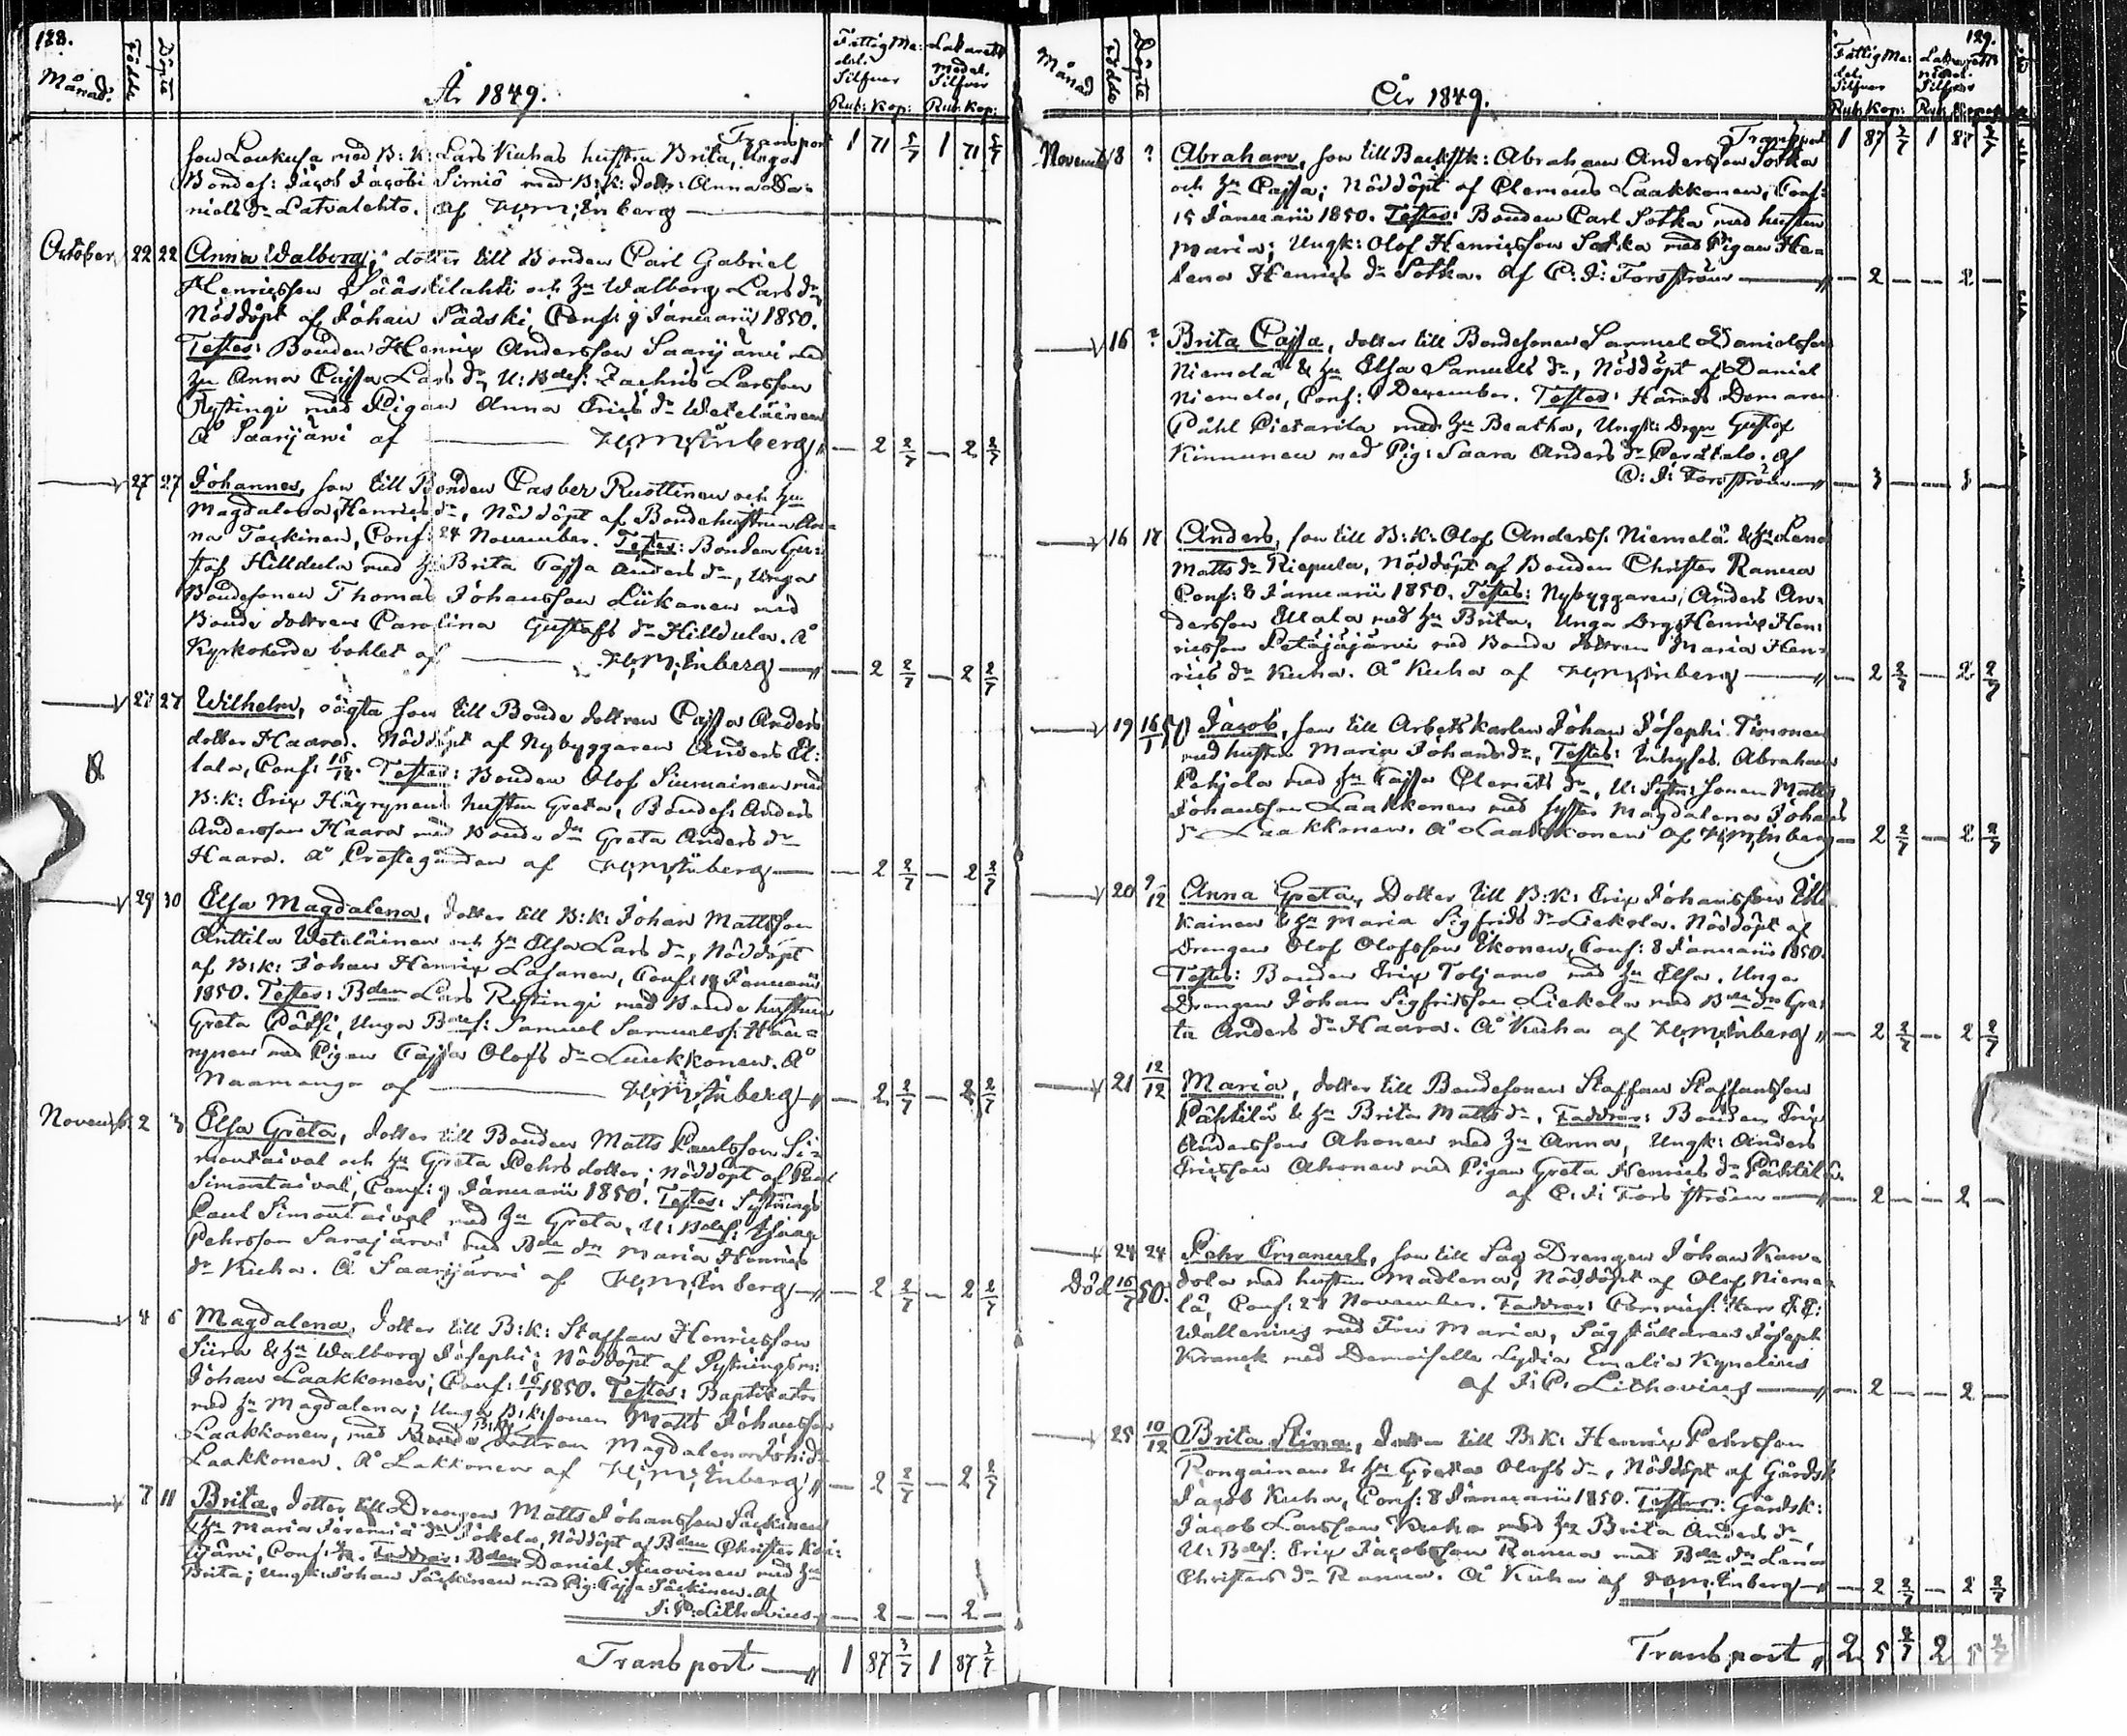 128.
Månad. Födde Döpte År 1849. Fattig Me: del. Silfver Rub: Kop: Lazaretts medel. Silfver Rub. Kop:
Transport 1 71 5/7 1 71 5/7
son Loukusa med B: K: Lars Kuhas hustru Brita, Unga
Bondes: Jacob Jacobi Simiö med B: K: dottr: Anna Da-
niels dr Latvalehto. af H: M: Enberg
October 22 22 Anna Walborg; dotter till Bonden Carl Gabriel
Henricsson Sääskilahti och hu Walborg Lars dr
Nöddöpt af Johan Sääski, Conf: 9 Januarii 1850.
Testes: Bonden Henrix Andersson Saarijärvi med
hu Anna Cajsa Lars dr, U: Bdes: Zachris Larsson
Rystingi med Pigan Anna Erics dr Weteläinen
Å Saarijärvi af H: M: Enberg 2 2/7 2 2/7
27 27 Johannes, son till Bonden Casber Ruottinen och hu
Magdalena Henrics dr, Nöddöpt af Bondehustrun An-
na Tackinen, Conf: 24 November. Testes: Bonden Gu-
staf Hilldula med hu Brita Cajsa Anders dr, Unga
Bondesonen Thomas Johansson Liikanen med
Bonde dottren Carolina Gustafs dr Hilldula. Å
Kyrkoherde bohlet af H: M: Enberg 2 2/7 2 2/7
27 27 Wilhelm, oägta son till Bonde dottren Cajsa Anders
dotter Haara. Nöddöpt af Nybyggaren Anders El-
lala, Conf: Testes: Bonden Olof Siurnainen med
B: K: Erix Häyrynens hustru Greta, Bondes: Anders
Andersson Haara med Bonde dn Greta Anders dr
Haara. Å Prestegården af H: M: Enberg 2 2/7 2 2/7
29 30 Elsa Magdalena, dotter till B: K: Johan Mattsson
Anttila Weteläinen och hu Elsa Lars dr, Nöddöpt
af B: K: Johan Henrix Lasanen, Conf: Januarii
1850. Testes: Bden Lars Rystingi med Bonde hustrun
Greta Pätsi, Unga Bdes: Samuel Samuelss: Häy-
rynen med Pigan Cajsa Olofs dr Luukkonen. Å
Naamanga af H: M: Enberg 2 2/7 2 2/7
Novemb: 2 3 Elsa Greta, dotter till Bonden Matts Paulsson Si-
montaival och hu Greta Pehrs dotter; Nöddöpt af Paul
Simontaival, Conf: 9 Januarii 1850. Testes: Sytnings
Paul Simontaival med hu Greta, U: Bdes: Isaac
Pehrsson Sarajärvi med Bde dn Maria Henrics
dr Kuha. Å Saarijärvi af H: M: Enberg 2 2/7 2 2/7
4 5 Magdalena, dotter till B: K: Staffan Henricsson
Siira & hu Walborg Josephi; Nöddöpt af Sytningsm:
Johan Laakkonen; Conf: 16/1 1850. Testes: Baptisator
med hu Magdalena; Unga B: K: sonen Matts Johansson
Laakkonen, med B: K: dottren Magdalena Joh: dr
Laakkonen. Å Lakkonen af H: M: Enberg 2 2/7 2 2/7
7 11 Brita, dotter till Drengen Matts Johansson Säckinen
& hu Maria Jeremiæ dr Jokela, Nöddöpt af Bden Christer Koi-
tijärvi, Conf: Faddrar: Bden Daniel Kuovinen med hu
Brita; Ungk: Johan Säckinen med Pig: Cajsa Säckinen. af
J: P: Lithovius 2 2
Transport 1 87 3/7 1 87 3/7
129.
Månad Födde Döpte År 1849. Fattig Me: del. Silfver Rub: Kop: Lazaretts medel. Silfver Rub. Kopek
Transport 1 87 3/7 1 87 3/7
November 8 ? Abraham, son till Backstk: Abraham Andersson Sotka
och hu Cajsa; Nöddöpt af Clemens Laakkonen, Conf:
15 Januarii 1850. Testes: Bonden Carl Sotka med hustru
Maria; Ungk: Olof Henricsson Sotka med Pigan He-
lena Henrics dr Sotka. af C: J: Forsström 2 2
16 ? Brita Cajsa, dotter till Bondesonen Samuel Danielsson
Niemelä & hu Elsa Samuels dr, Nöddöpt af Daniel
Niemelä, Conf: 8 December. Testes: Härads Domaren
Påhl Pietarila med hu Beatha, Ungk: Drgn Gustaf
Kinnunen med Pig: Saara Anders dr Perätalo. af
C: J: Forsström 3 3
16 17 Anders, son till B: K: Olof Anderss: Niemelä & hu Lena
Matts dr Riepula, Nöddöpt af Bonden Christer Ranua
Conf: 8 Januarii 1850. Testes: Nybyggaren Anders An-
dersson Ellala med hu Brita, Unga Drg: Henrix Hen-
ricsson Petäjäjärvi med Bonde dottren Maria Hen-
rics dr Kuha. Å Kuha af H: M: Enberg 2 2/7 2 2/7
19 16/1 50 Jacob, son till Arbetskarlen Johan Josephi Timonen
med hustru Maria Johans dr, Testes: Inhyses. Abraham
Pohjola med hu Cajsa Clemets dr, U: Sytn: sonen Matts
Johansson Laakkonen med syster Magdalena Johans
dr Laakkonen. Å Laakkonen af H: M: Enberg 2 2/7 2 2/7
20 9/12 Anna Greta, Dotter till B: K: Erix Johansson Illi-
kainen & hu Maria Sigfrids dr Liekola. Nöddöpt af
Drengen Olof Olofsson Ikonen, Conf: 8 Januarii 1850.
Testes: Bonden Erix Toljamo med hu Elsa, Unga
Drengen Johan Sigfridsson Liekola med Bde dn Gre-
ta Anders dr Haara. Å Kuha af H: M: Enberg 2 2/7 2 2/7
21 12/12 Maria, dotter till Bondesonen Staffan Staffansson
Pähtilä & hu Brita Matts dr, Faddrar: Bonden Erix
Andersson Ahonen med hu Anna, Ungk: Anders
Ericsson Ahonen med Pigan Greta Henrics dr Pähtilä.
af C: J: Forsström 2 2
24 24 Pehr Emanuel, son till Såg Drengen Johan Kan-
Död 16/7 50. dola med hustru Madlena, Nöddöpt af Olof Nieme-
lä, Conf: 27 November. Faddrar: Commis: Herr
Wallenius med Fru Maria, Sågställaren Joseph
Kranck med Demoiselle Lydia Emelia Kynelius
af J: P: Lithovius 2 2
25 10/12 Brita Stina, dotter till B: K: Henrix Pehrsson
Rongainen & hu Greta Olofs dr, Nöddöpt af Gårdsk
Jacob Kuha, Conf: 8 Januarii 1850. Testes: Gårdsk:
Jacob Larsson Kuha med hu Brita Anders dr,
U: Bdes: Erix Jacobsson Ranua med Bde dn Lena
Christers dr Ranua. Å Kuha af H: M: Enberg 2 2/7 2 2/7
Transport 2 5 4/7 2 5 4/7